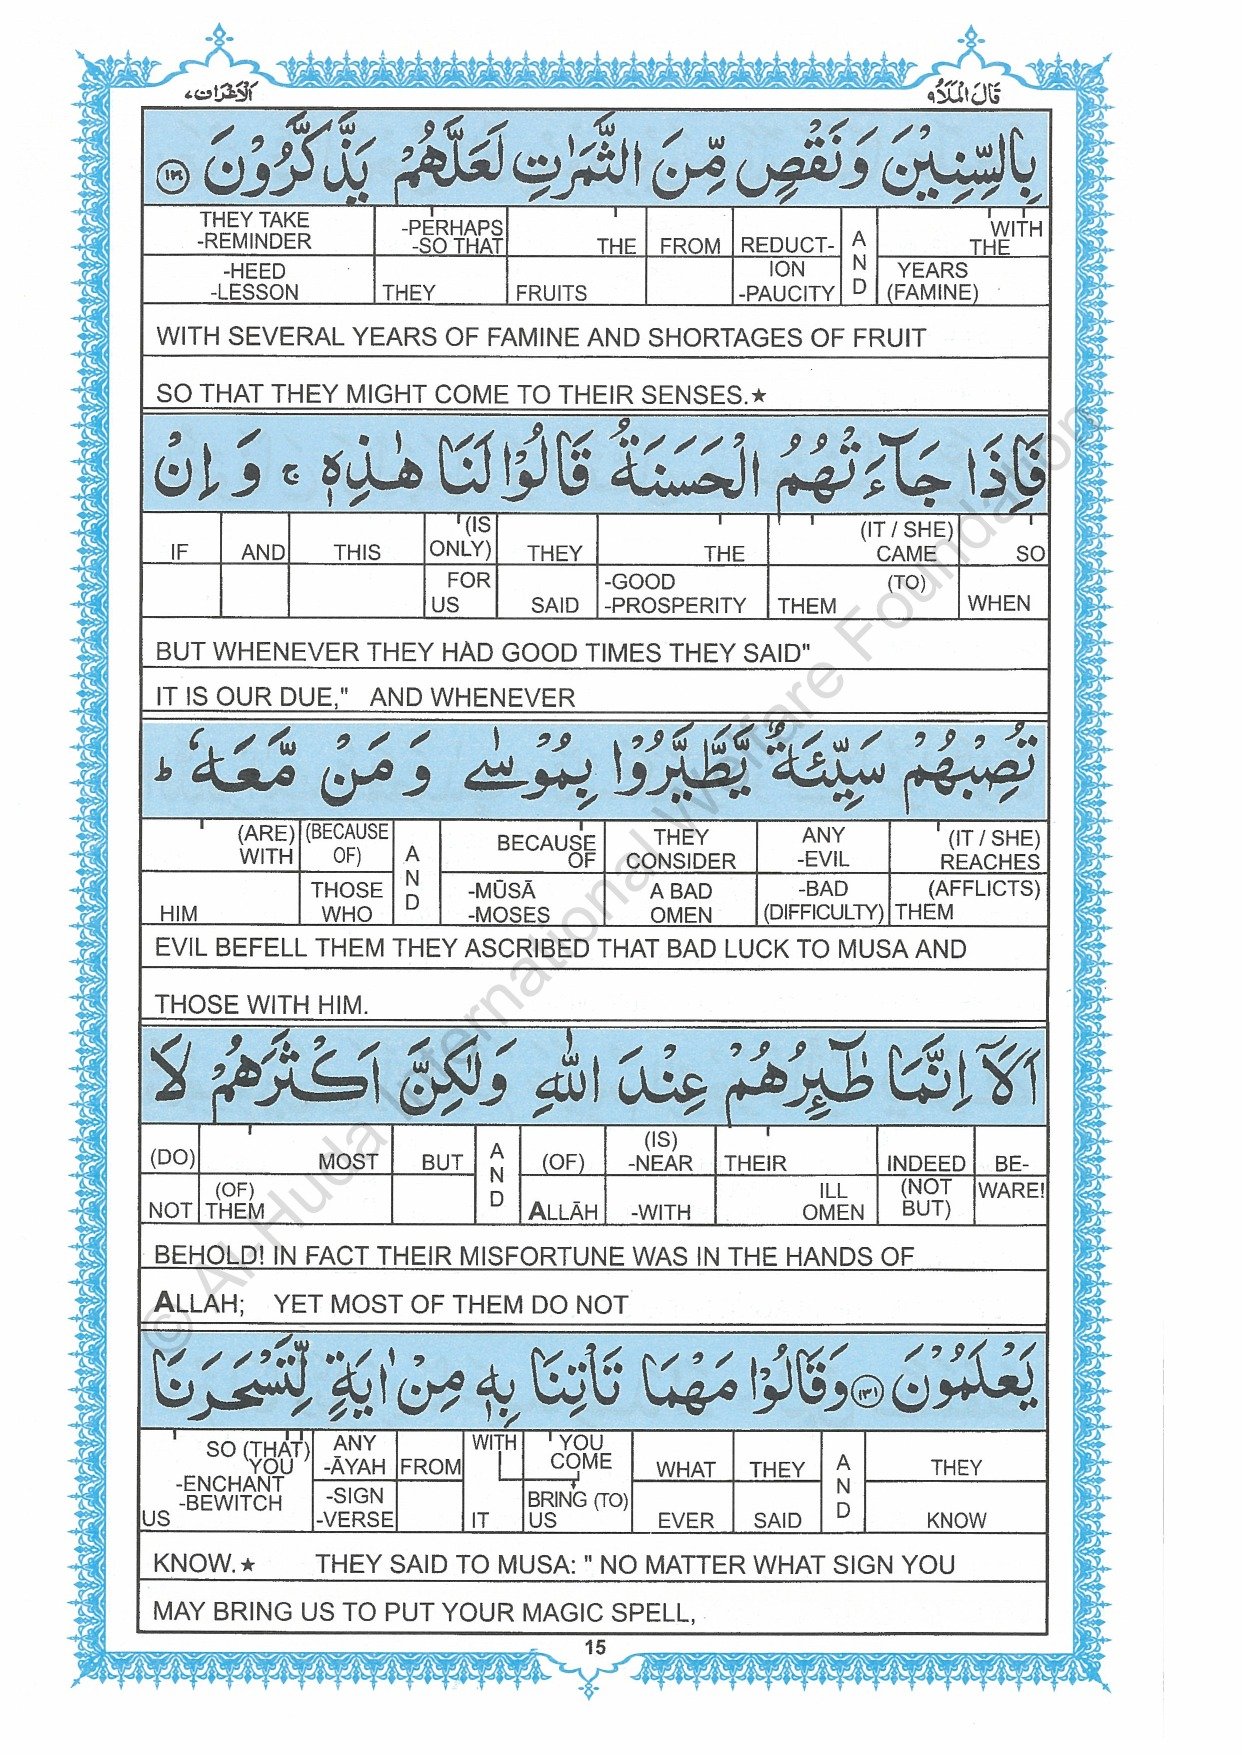 الاعراف ٧ قال الملأ ٩
بِالسِّنِيْنَ وَنَقْصٍ مِّنَ الثَّمَرٰتِ لَعَلَّهُمْ يَذَّكَّرُوْنَ ﴿۱۳۰﴾
THEY TAKE -REMINDER -PERHAPS -SO THAT THE FROM REDUCT- AND WITH THE
-HEED -LESSON THEY FRUITS ION -PAUCITY YEARS (FAMINE)
WITH SEVERAL YEARS OF FAMINE AND SHORTAGES OF FRUIT
SO THAT THEY MIGHT COME TO THEIR SENSES.★
فَاِذَا جَآءَتْهُمُ الْحَسَنَةُ قَالُوْا لَنَا هٰذِهٖ ۚ وَ اِنْ
IF AND THIS (IS ONLY) THEY THE (IT / SHE) CAME SO
FOR US SAID -GOOD -PROSPERITY THEM (TO) WHEN
BUT WHENEVER THEY HAD GOOD TIMES THEY SAID"
IT IS OUR DUE," AND WHENEVER
تُصِبْهُمْ سَيِّئَةٌ يَّطَّيَّرُوْا بِمُوْسٰى وَ مَنْ مَّعَهٗ ؕ
(ARE) WITH (BECAUSE OF) AND BECAUSE OF THEY CONSIDER ANY -EVIL (IT / SHE) REACHES
HIM THOSE WHO -MŪSĀ -MOSES A BAD OMEN -BAD (DIFFICULTY) (AFFLICTS) THEM
EVIL BEFELL THEM THEY ASCRIBED THAT BAD LUCK TO MUSA AND
THOSE WITH HIM.
اَلَاۤ اِنَّمَا طٰٓئِرُهُمْ عِنْدَ اللّٰهِ وَلٰكِنَّ اَكْثَرَهُمْ لَا
(DO) MOST BUT AND (OF) (IS) -NEAR THEIR INDEED BE-
NOT (OF) THEM ALLĀH -WITH ILL OMEN (NOT BUT) WARE!
BEHOLD! IN FACT THEIR MISFORTUNE WAS IN THE HANDS OF
ALLAH; YET MOST OF THEM DO NOT
يَعْلَمُوْنَ ﴿۱۳۱﴾ وَقَالُوْا مَهْمَا تَاْتِنَا بِهٖ مِنْ اٰيَةٍ لِّتَسْحَرَنَا
SO (THAT) YOU -ENCHANT -BEWITCH ANY -ĀYAH FROM WITH YOU COME WHAT THEY AND THEY
US -SIGN -VERSE IT BRING (TO) US EVER SAID KNOW
KNOW.★ THEY SAID TO MUSA: " NO MATTER WHAT SIGN YOU
MAY BRING US TO PUT YOUR MAGIC SPELL,
15
© Al-Huda International Welfare Foundation